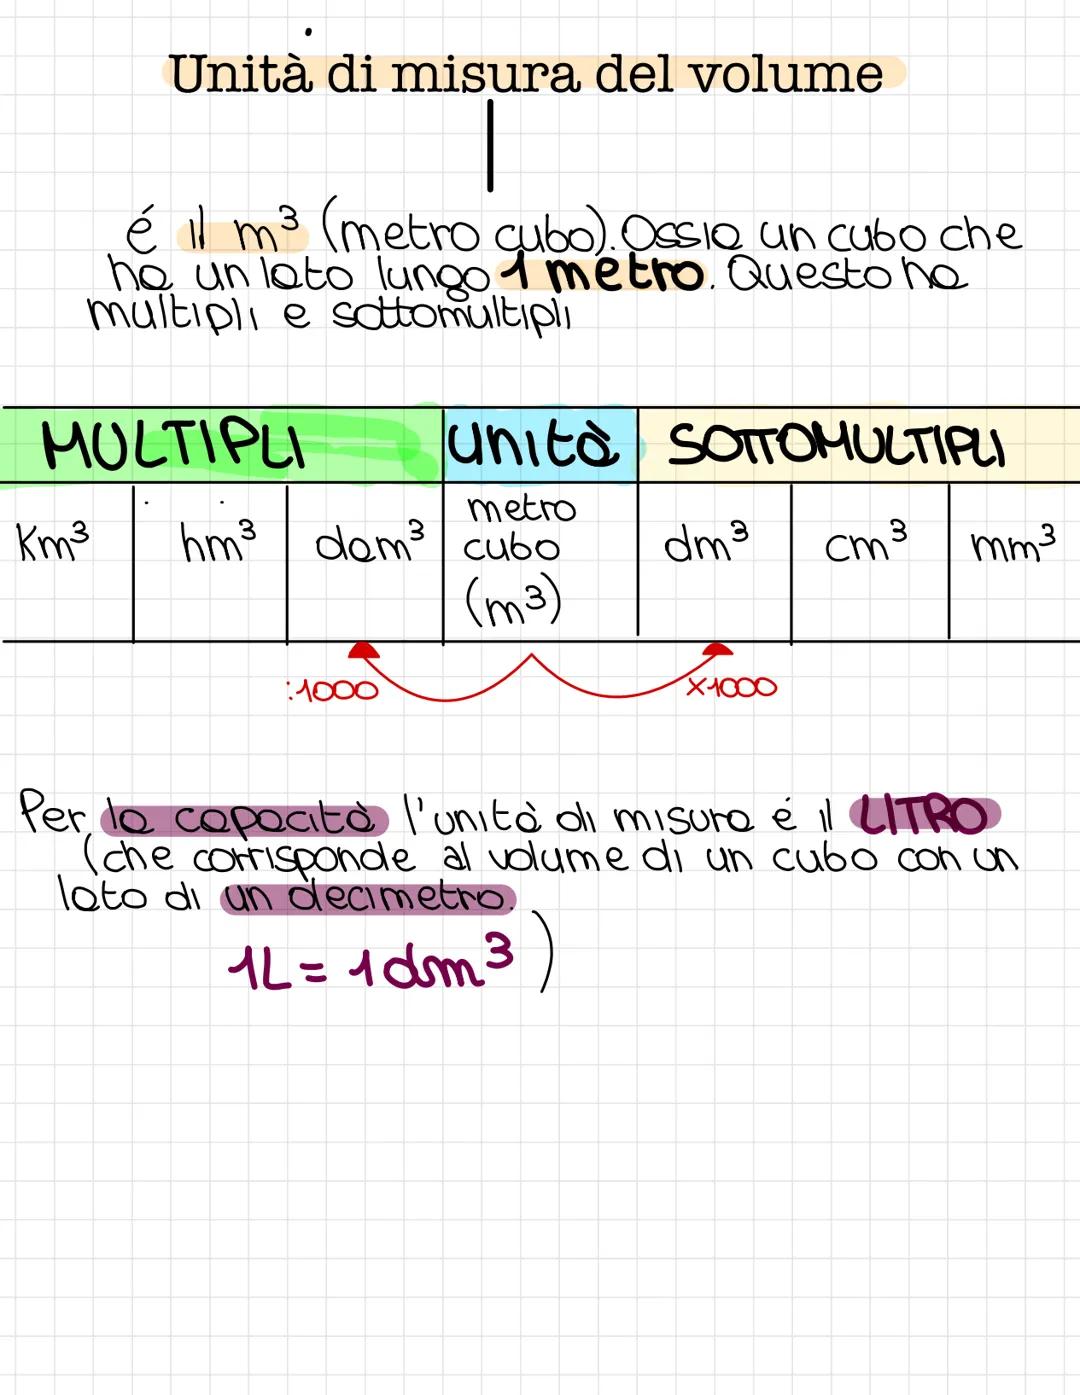 Unità di misura del volume
é il m³ (metro cubo). Ossia un cubo che
ha un lato lungo 1 metro. Questo ha
multipli e sottomultipli
MULTIPLI unità SOTTOMULTIPLI
Km³ hm³ dam³ metro cubo (m³) dm³ cm³ mm³
:1000 x1000
Per la capacità l'unità di misura é il LITRO
(che corrisponde al volume di un cubo con un
lato di un decimetro.
1L = 1dm³ )